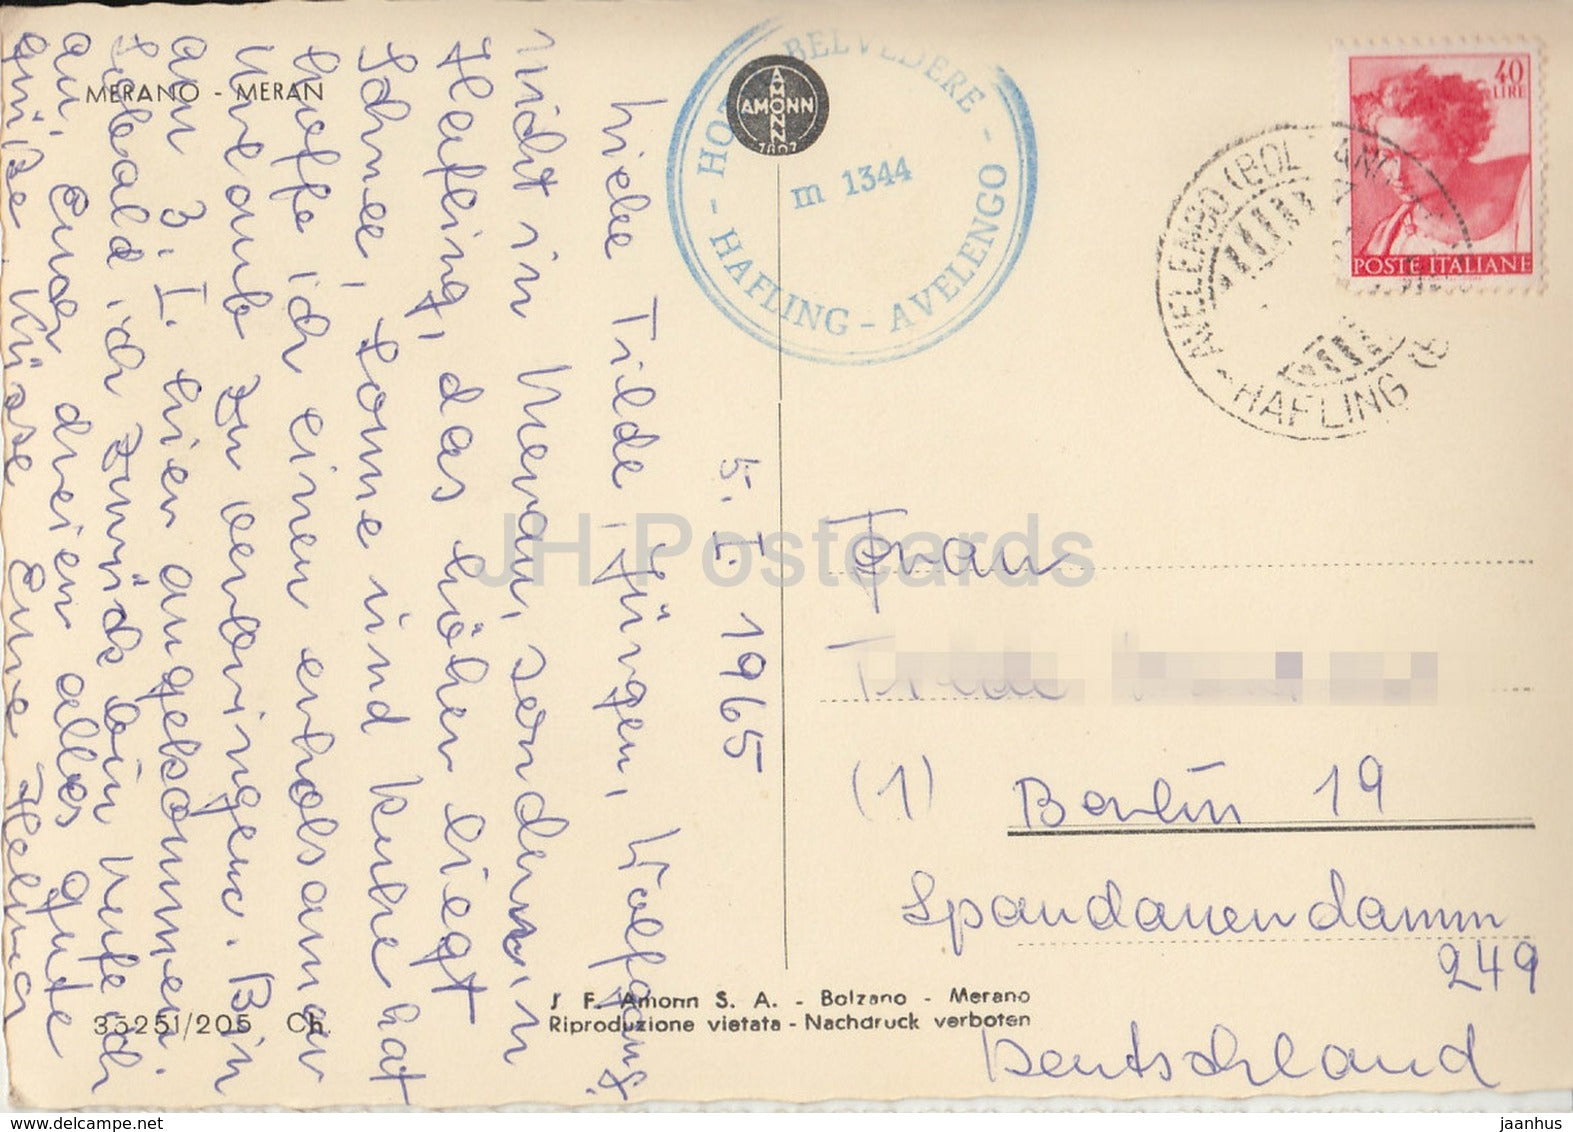 MERANO - MERAN
5. I. 1965
Liebe Tilde, Jürgen, Wolfgang.
Nicht in Meran, sondern in
Hafling, das höher liegt
Schnee, Sonne und Ruhe hat
hoffe ich einen erholsamen
Urlaub zu verbringen. Bin
am 3. I. hier angekommen.
Sobald ich zurück bin rufe ich
an. Euch dreien alles gute
grüße, Küsse Eure Helma
35251/205 Ch.
HOTEL BELVEDERE -
m 1344
- HAFLING - AVELENGO
AMONN
AMONN
40
LIRE
POSTE ITALIANE
AVELENGO (BOLZANO)
HAFLING
Frau
Tilde
(1) Berlin 19
Spandauerdamm
249
Deutschland
J. F. Amonn S. A. - Bolzano - Merano
Riproduzione vietata - Nachdruck verboten
JH Postcards
www.delcampe.net
jaanhus